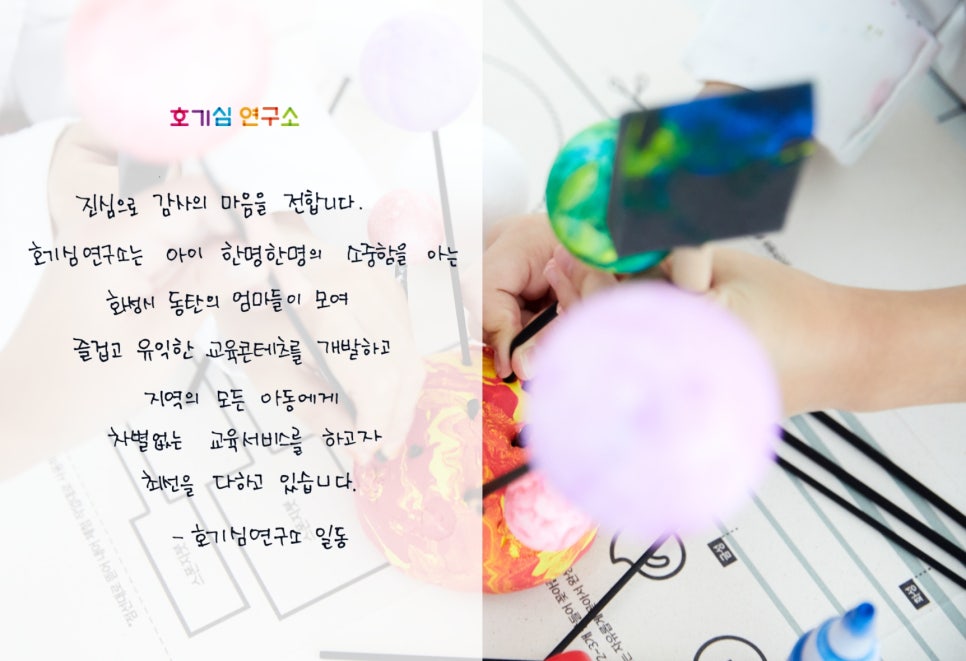 호기심 연구소
진심으로 감사의 마음을 전합니다.
호기심 연구소는 아이 한명한명의 소중함을 아는
화성시 동탄의 엄마들이 모여
즐겁고 유익한 교육콘테츠를 개발하고
지역의 모든 아동에게
차별없는 교육서비스를 하고자
최선을 다하고 있습니다.
- 호기심연구소 일동